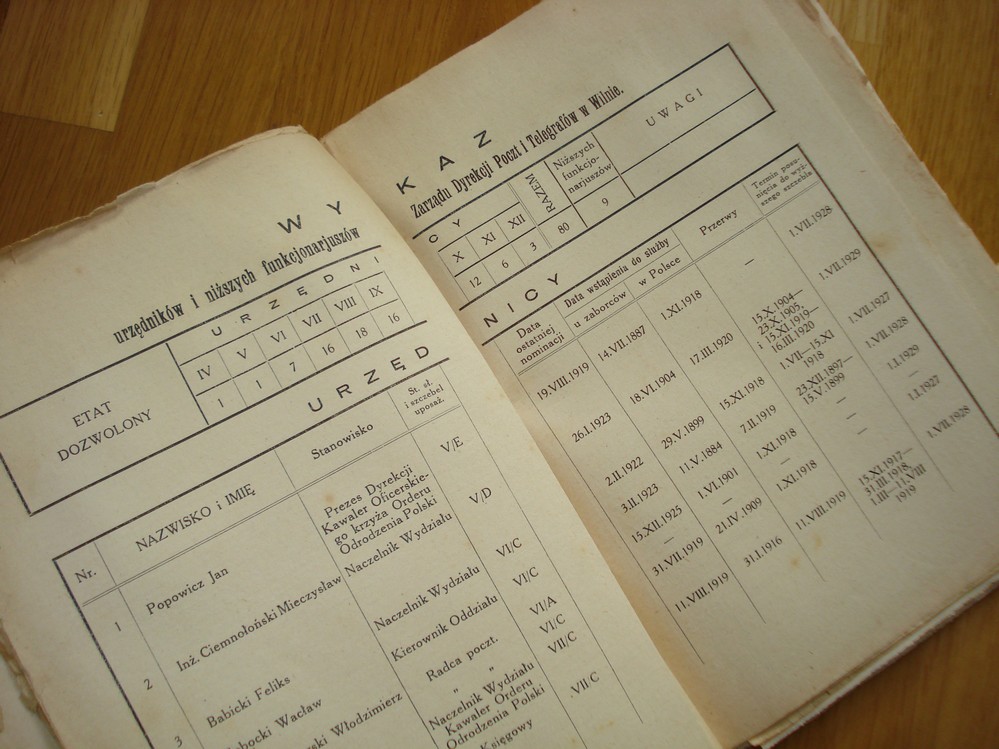 WY
urzędników i niższych funkcjonarjuszów
ETAT
DOZWOLONY
URZĘDNI
IV V VI VII VIII IX
1 1 7 16 18 16
URZĘD
Nr.
NAZWISKO i IMIĘ
Stanowisko
St. sł.
i szczebel
uposaż.
1
Popowicz Jan
Prezes Dyrekcji
Kawaler Oficerskie-
go krzyża Orderu
Odrodzenia Polski
V/E
2
Inż. Ciemnołoński Mieczysław
Naczelnik Wydziału
V/D
3
Babicki Feliks
Naczelnik Wydziału
VI/C
Wacław
Kierownik Oddziału
VI/C
Włodzimierz
Radca poczt.
VI/A
„ „
VI/C
Naczelnik Wydziału
Kawaler Orderu
Odrodzenia Polski
VII/C
Księgowy
VII/C
KAZ
Zarządu Dyrekcji Poczt i Telegrafów w Wilnie.
CY
X XI XII
12 6 3
RAZEM
80
Niższych
funkcjo-
narjuszów
9
UWAGI
NICY
Data
ostatniej
nominacji
Data wstąpienia do służby
u zaborców
w Polsce
Przerwy
Termin posu-
nięcia do wyż-
szego szczebla
19.VIII.1919 14.VII.1887 1.XI.1918 — 1.VII.1928
26.I.1923 18.VI.1904 17.III.1920 15.X.1904—
23.X.1905,
i 15.XI.1919—
16.III.1920
1.VII.1929
2.II.1922 29.V.1899 15.XI.1918 1.VII—15.XI
1918
1.VII.1927
3.II.1923 11.V.1884 7.II.1919 23.XII.1897—
15.V.1899
1.VII.1928
15.XII.1925 1.VI.1901 1.XI.1918 — 1.I.1929
— — — — —
31.VII.1919 21.IV.1909 1.XI.1918 — 1.I.1927
11.VIII.1919 31.I.1916 11.VIII.1919 15.XI.1917—
31.III.1918
1.III—11.VIII
1919
1.VII.1928